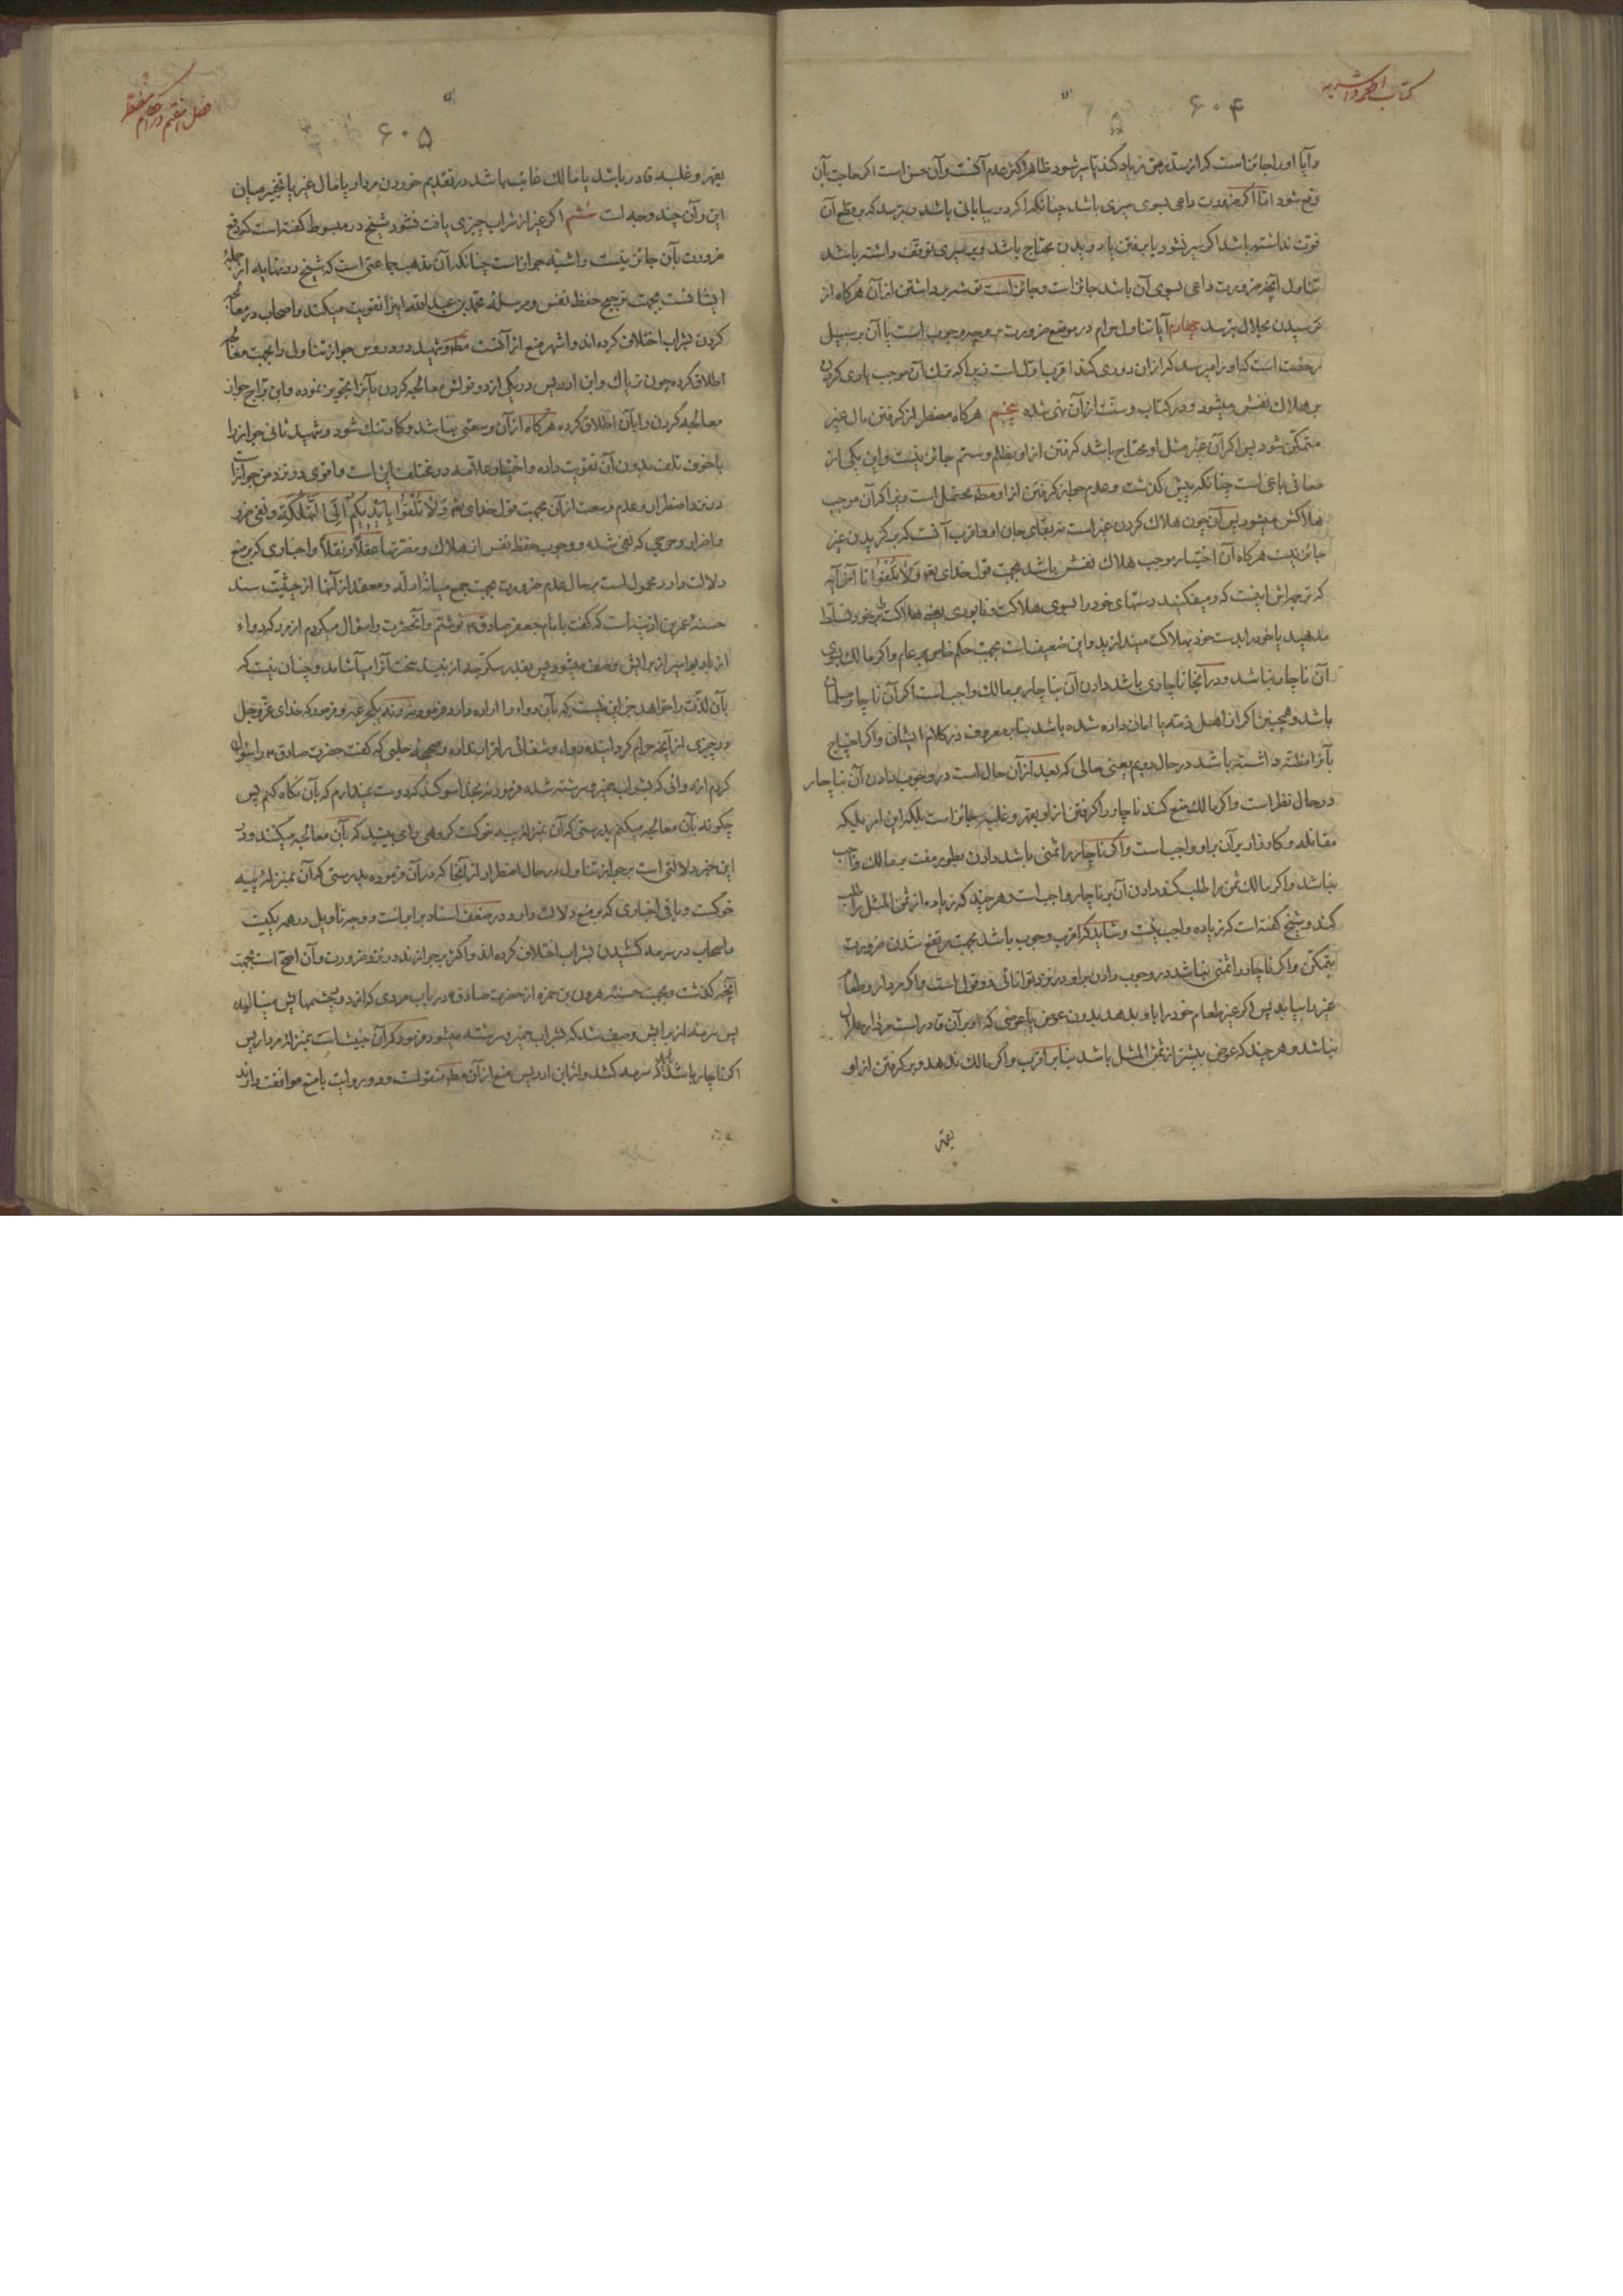 کتاب اطعمه و اشربه
۶۰۴
و آیا او را جائز است که از سد رمق زیاد کند یا سیر شود ظاهر اکثر عدم آنست و آن حسن است اگر حاجت بآن
رفع شود اما اگر ضرورت داعی بسوی سیری باشد چنانکه اگر در بیابانی باشد و بترسد که بر قطع آن
قوت نداشته باشد اگر سیر نشود یا برفتن پیاده و بدویدن محتاج باشد و بر سیری توقف داشته باشد
تناول آنچه ضرورت داعی بسوی آن باشد جائز است و جائز است توشه برداشتن از آن هرگاه از
نرسیدن بحلال بترسد چهارم آیا تناول حرام در موضع ضرورت بر وجه وجوب است یا آن بر سبیل
رخصت است که او را میرسد که از آن دوری کند اقرب اول است زیرا که ترک آن موجب یاری کردن
بر هلاک نفس میشود و در کتاب و سنت از آن نهی شده پنجم هرگاه مضطر از گرفتن مال غیر
متمکن شود پس اگر آن غیر مثل او محتاج باشد گرفتن از او بظلم و ستم جائز نیست و این یکی از
معانی باغی است چنانکه پیش گذشت و عدم جواز گرفتن از او مطلقا محتمل است زیرا که آن موجب
هلاکش میشود پس آن چون هلاک کردن غیر است از برای بقای جان او و اقرب آنست که برگزیدن غیر
جائز نیست هرگاه آن اختیار موجب هلاک نفسش باشد بجهت قول خدای تعالی وَلا تُلقُوا تا آخر آیه
که ترجمه‌اش اینست که و میفکنید دستهای خود را بسوی هلاکت و نابودی یعنی هلاکت را بر خود تسلط
مدهید یا خود را بدست خود بهلاکت میندازید و این ضعیف است بجهت حکم خاص بر عام و اگر مالک بسوی
آن ناچار نباشد و در آنجا ناچاری باشد دادن آن بناچار بر مالک واجب است اگر آن ناچار مسلمان
باشد و همچنین اگر از اهل ذمه یا امان داده شده باشد بنا بر معروف در کلام ایشان و اگر احتیاج
بآن داشته باشد در حال دویم یعنی حالی که بعد از آن حال است در وجوب دادن آن بناچار
در حال نظر است و اگر مالک منع کند ناچار را گرفتن از او بقهر و غلبه جائز است بلکه این امر بلکه
مقاتله و کارزار بر آن بر او واجب است و اگر ناچار را ثمنی باشد دادن بطور مفت بر مالک واجب
نباشد و اگر مالک ثمن را طلب کند دادن آن بر ناچار واجب است و هر چند که زیاده از ثمن المثل را طلب
کند و شیخ گفته است که زیاده واجب نیست و شاید که اقرب وجوب باشد بجهت مرتفع شدن ضرورت
بتمکن و اگر ناچار را ثمنی نباشد در وجوب دادن بر او در نزد توانائی دو قول است و اگر مردار و طعام
غیر را بیابد پس اگر غیر طعام خود را باو بدهد بدون عوض یا عوضی که او بر آن قادر است مردار حلال
نباشد و هر چند که عوض بیشتر از ثمن المثل باشد بنا بر اقرب و اگر مالک ندهد و بر گرفتن از او
بقهر
فصل هفتم در احکام مضطر
۶۰۵
بقهر و غلبه قادر باشد یا مالک غائب باشد در تقدیم خوردن مردار یا مال غیر یا تخییر میان
این و آن چند وجه است ششم اگر غیر از شراب چیزی یافت نشود شیخ در مبسوط گفته است که دفع
ضرورت بآن جائز نیست و اشبه جواز است چنانکه آن مذهب جماعتی است که شیخ در نهایه از جمله
ایشانست بجهت ترجیح حفظ نفس و مرسله محمد بن عبد الله اینرا تقویت میکند و اصحاب در معالجه
کردن بشراب اختلاف کرده‌اند و اشهر منع از آنست مطلقا و شهید در دروس جواز تناول را بجهت معالجه
اطلاق کرده چون تریاک و ابن ادریس در یکی از دو قولش معالجه کردن بآنرا تجویز نموده و ابن براج جواز
معالجه کردن را بآن اطلاق کرده هرگاه از آن وسعتی نباشد و کار تنگ شود و شهید ثانی جواز را
با خوف تلف بدون آن تقویت داده و اختیار علامه در مختلف این است و اقوی در نزد من جواز آنست
در نزد اضطرار و عدم وسعت از آن بجهت قول خدای تعالی وَلا تُلقُوا بِاَیدیکُم اِلَی التَّهلُکَةِ و نفی ضرر
و اضرار و حرجی که نفی شده و وجوب حفظ نفس از هلاک و مضرتها عقلًا و نقلًا و اخباری که بر منع
دلالت دارد محمول است بر حال عدم ضرورت بجهت جمع میانه ادله و معتمد از آنها از حیثیت سند
حسنه عمر بن اذینه است که گفت بامام جعفر صادق ع نوشتم و آنحضرت را سؤال میکردم از مردی که دواء
از باد بواسیر از برایش وصف میشود پس بقدر سکرجه از نبید سخت آنرا میآشامد و چنان نیست که
بآن لذت را خواهد جز این نیست که بآن دواء را اراده دارد فرمودند نه یک جرعه و فرمود که خدای عز و جل
در چیزی از آنچه حرام گردانیده دواء و شفائی را قرار نداده و صحیحه حلبی که گفت حضرت صادق ع را سؤال
کردم از دوائی که بشراب خمیر و سرشته شده فرمود نه بخدا سوگند که دوست نمیدارم که بآن نگاه کنم پس
چگونه بآن معالجه میکنم بدرستی که آن بمنزله پیه خوکست گروهی را می‌بینید که بآن معالجه میکنند و در
این خبر دلالتی است بر جواز تناول در حال اضطرار از آنجا که در آن فرموده بدرستی که آن بمنزله پیه
خوکست و باقی اخباری که بر منع دلالت دارد در ضعف اسناد برابر است و وجه تاویل در همه یکیست
و اصحاب در سرمه کشیدن بشراب اختلاف کرده‌اند و اکثر بر جوازند در نزد ضرورت و آن اصح است بجهت
آنچه گذشت و بجهت حسنه هرون بن حمزه از حضرت صادق ع در باب مردی که از درد چشمهایش مینالید
پس سرمه از برایش وصف شد که بشراب خمیر و سرشته میشود فرمود که آن خبیث است بمنزله مردار پس
اگر ناچار باشد باید که سرمه کشد و از ابن ادریس منع از آن مطلقا منقولست و دو روایت با منع موافقت دارند